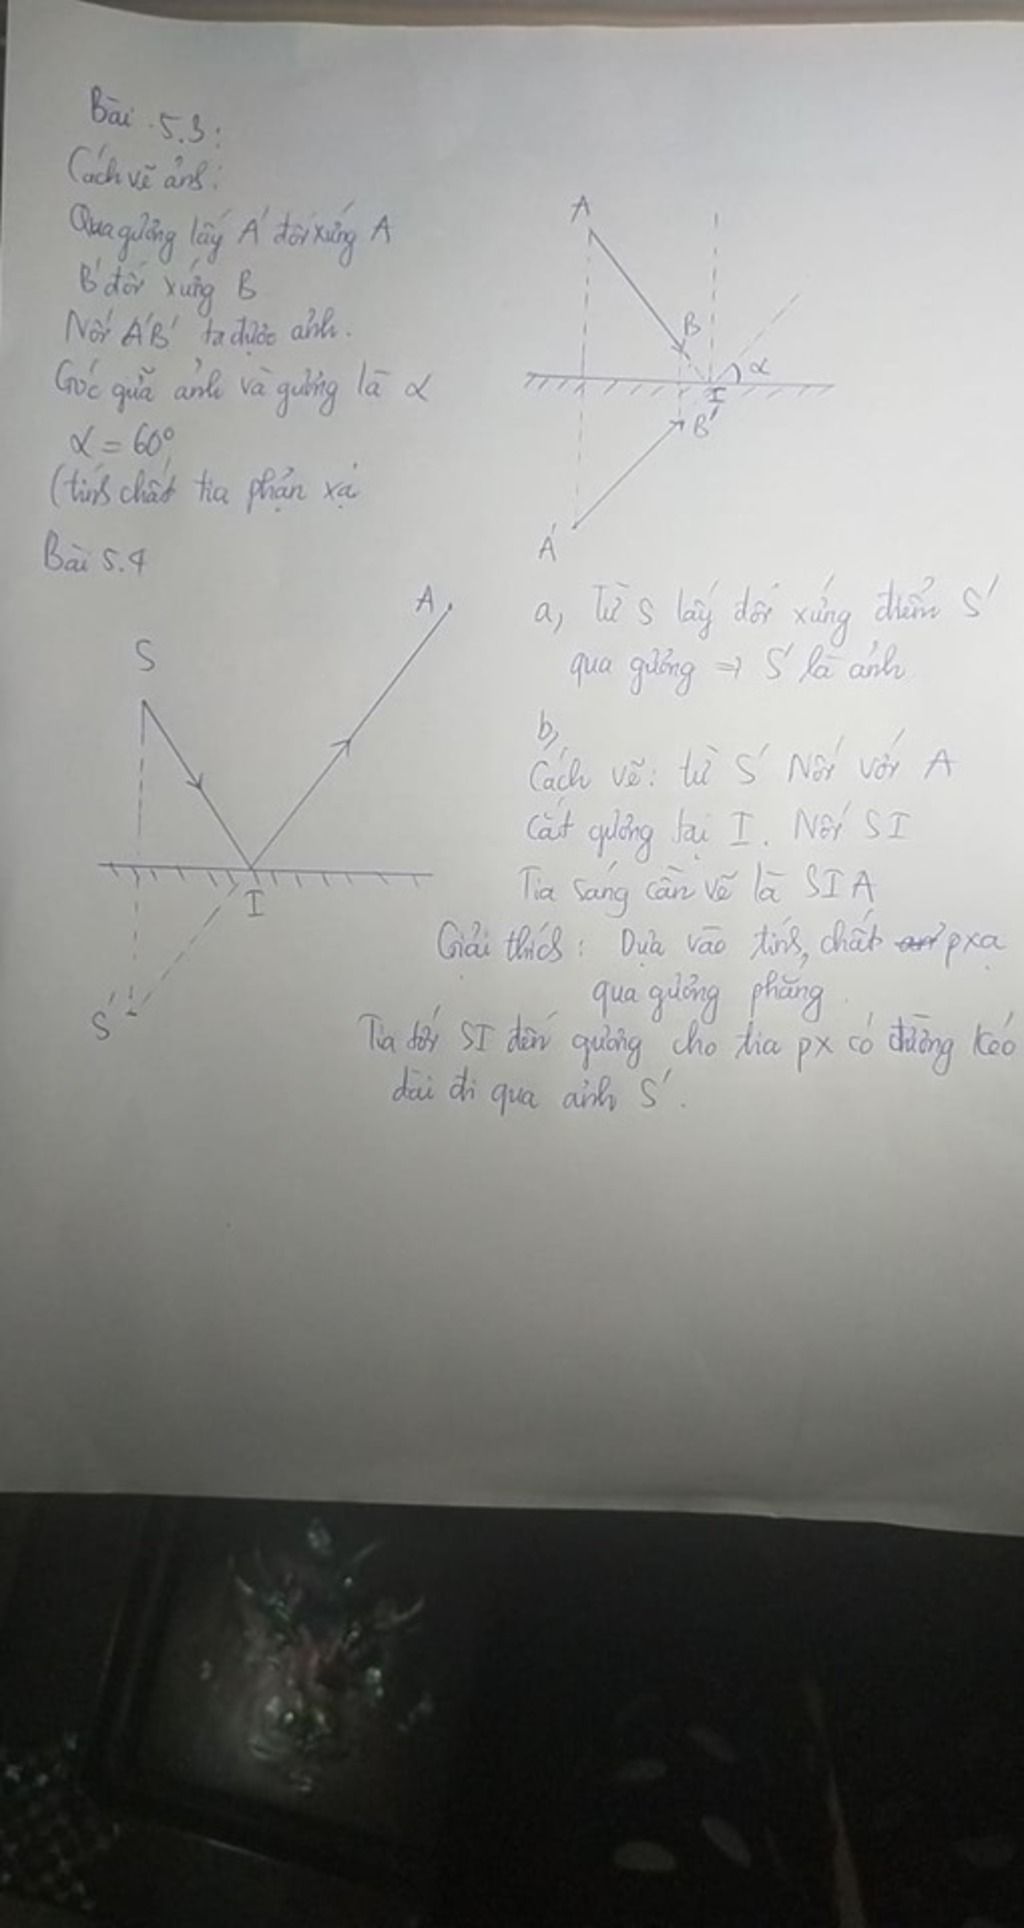 Bài 5.3:
Cách vẽ ảnh:
Qua gương lấy A' đối xứng A
B' đối xứng B
Nối A'B' ta được ảnh.
Góc giữa ảnh và gương là α
α = 60°
(tính chất tia phản xạ
A
B
α
I
B'
A'
Bài 5.4
S
A
I
S'
a, Từ S lấy đối xứng điểm S'
qua gương => S' là ảnh
b,
Cách vẽ: từ S' Nối với A
cắt gương tại I. Nối SI
Tia sáng cần vẽ là SIA
Giải thích: Dựa vào tính chất pxạ
qua gương phẳng.
Tia tới SI đến gương cho tia px có đường kéo
dài đi qua ảnh S'.